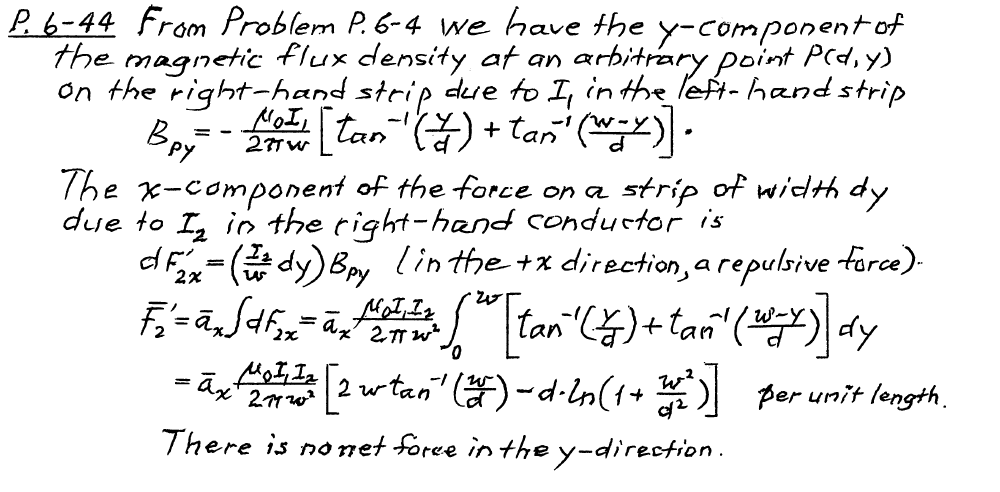 P. 6-44 From Problem P. 6-4 we have the y-component of
the magnetic flux density at an arbitrary point P(d, y)
on the right-hand strip due to I₁ in the left-hand strip
B_Py = - μ₀I₁/2πw [tan⁻¹(y/d) + tan⁻¹((w-y)/d)].
The x-component of the force on a strip of width dy
due to I₂ in the right-hand conductor is
dF'₂ₓ = (I₂/w dy) B_Py (in the +x direction, a repulsive force).
F̄'₂ = āₓ∫dF'₂ₓ = āₓ μ₀I₁I₂/2πw² ∫₀ʷ [tan⁻¹(y/d) + tan⁻¹((w-y)/d)] dy
= āₓ μ₀I₁I₂/2πw² [2w tan⁻¹(w/d) - d·ln(1 + w²/d²)] per unit length.
There is no net force in the y-direction.